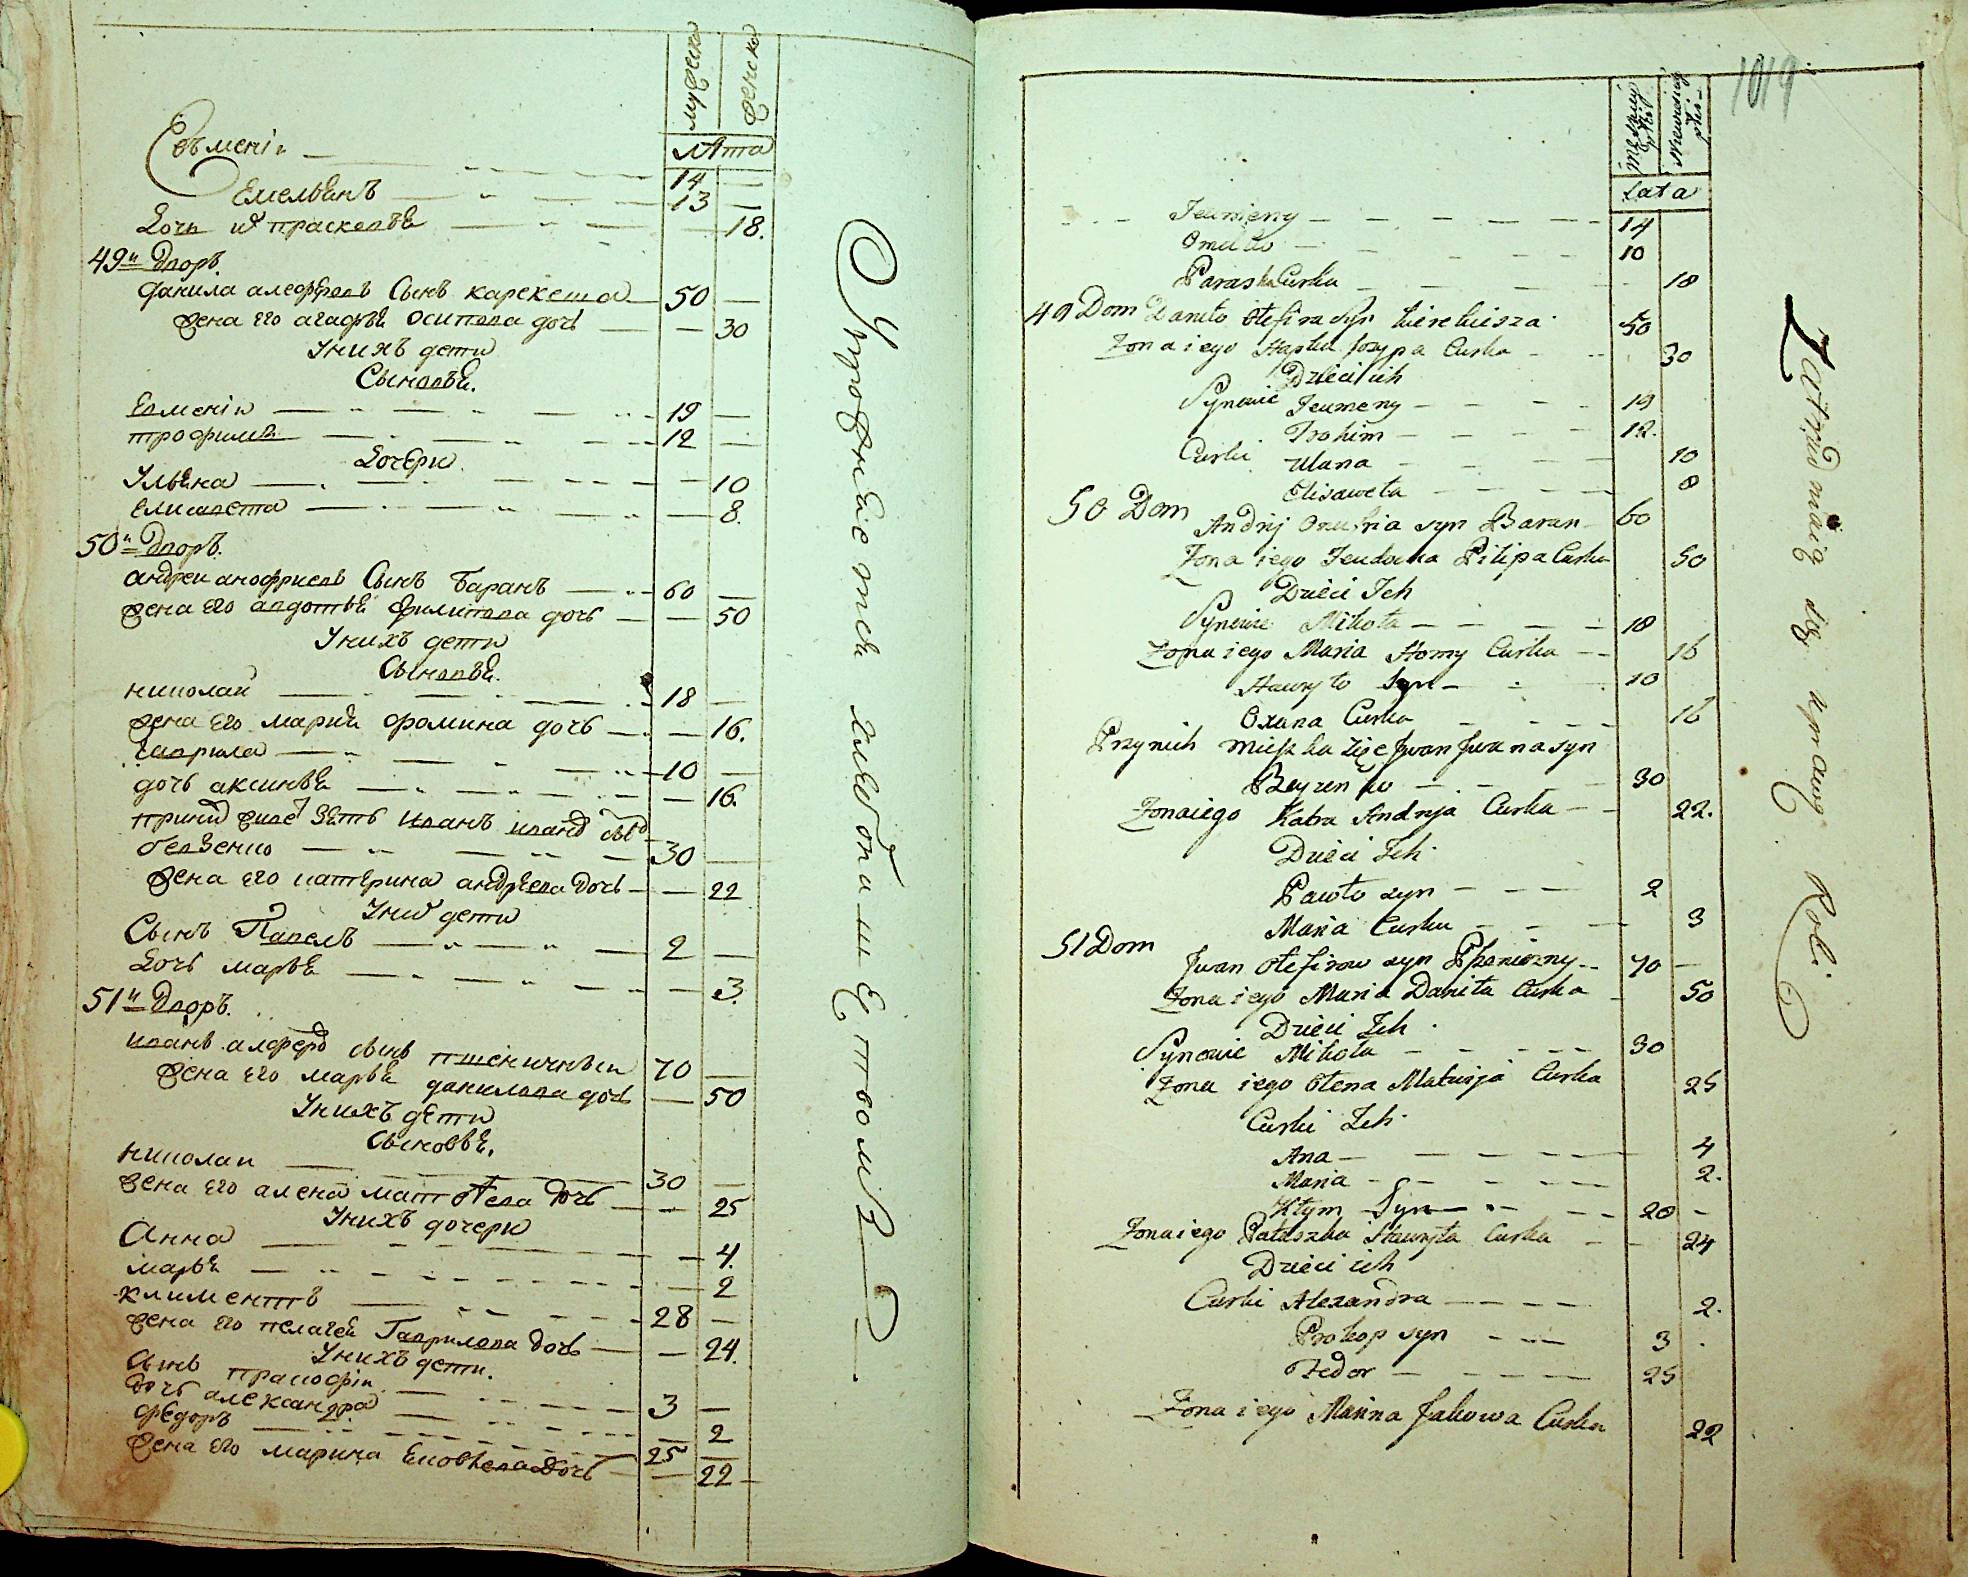 мужеска
женска
лѣта
Евмениі 14
Емельянъ 13
Дочь их праскевья 18.
49й дворъ.
данила алефревъ Сынъ карекеша 50
жена его агафья осипова дочь 30
У нихъ дети
Сыновья.
Евмениі 19
трофимъ 12
Дочери.
Ульяна 10
Елисавета 8.
50й дворъ.
андреи анофриевъ Сынъ Баранъ 60
жена его авдотья филипова дочь 50
У нихъ дети
Сыновья.
николаи 18
жена его мария фомина дочь 16.
гаврила 10
дочь аксинья 16.
при них живе зять иванъ иванов сын
30
жена его катерина андрѣева дочь 22
У них дети
Сынъ Павелъ 2
Дочь марья 3.
51й дворъ.
иванъ алфер. сынъ пшеничныи 70
жена его марья данилова дочь 50
У нихъ дети
Сыновья.
николаи 30
жена его алена матвѣева дочь 25
У нихъ дочери
Анна 4.
марья 2
климентъ 28
жена его пелагея Гаврилова дочь 24.
У нихъ дети.
Сынъ прокофіи 3
дочь александра 2
федоръ 25
жена его марина Яковлева дочь 22
Упражняется хлебопашеством
1019
męzkiey płci
Niewiesciey płci
Lata
Jeumeny 14
Omelko 10
Paraska Curka 18
49 Dom Daniło Olefira syn Kirekisza 50
Zona iego Hapka Josypa Curka 30
Dzieci ich
Synowie Jeumeny 19
Trohim 12.
Curki Ulana 10
Elisaweta 8
50 Dom
Andrij Onufria syn Baran 60
Zona iego Jeudocha Pilipa Curka 50
Dzieci Ich
Synowie Mikoła 18
Zona iego Maria Homy Curka 16
Hawryło Syn 10
Oxana Curka 16
Przy nich mieszka Zięć Jwan Jwana syn
30
Zona iego Katra Andryja Curka 22.
Dzieci Ich
Pawło syn 2
Maria Curka 3
51 Dom
Jwan Olefirow syn Pszeniczny 70
Zona iego Maria Daniła Curka 50
Dzieci Ich
Synowie Mikoła 30
Zona iego Olena Matwija Curka 25
Curki Ich
Ana 4
Maria 2.
Kłym Syn 28
Zona iego Pałaszka Hawryła Curka 24
Dzieci ich
Curki Alexandra 2.
Prokop syn 3
Fedor 25
Zona iego Marina Jakowa Curka 22
Zatrudniaią się uprawą Roli